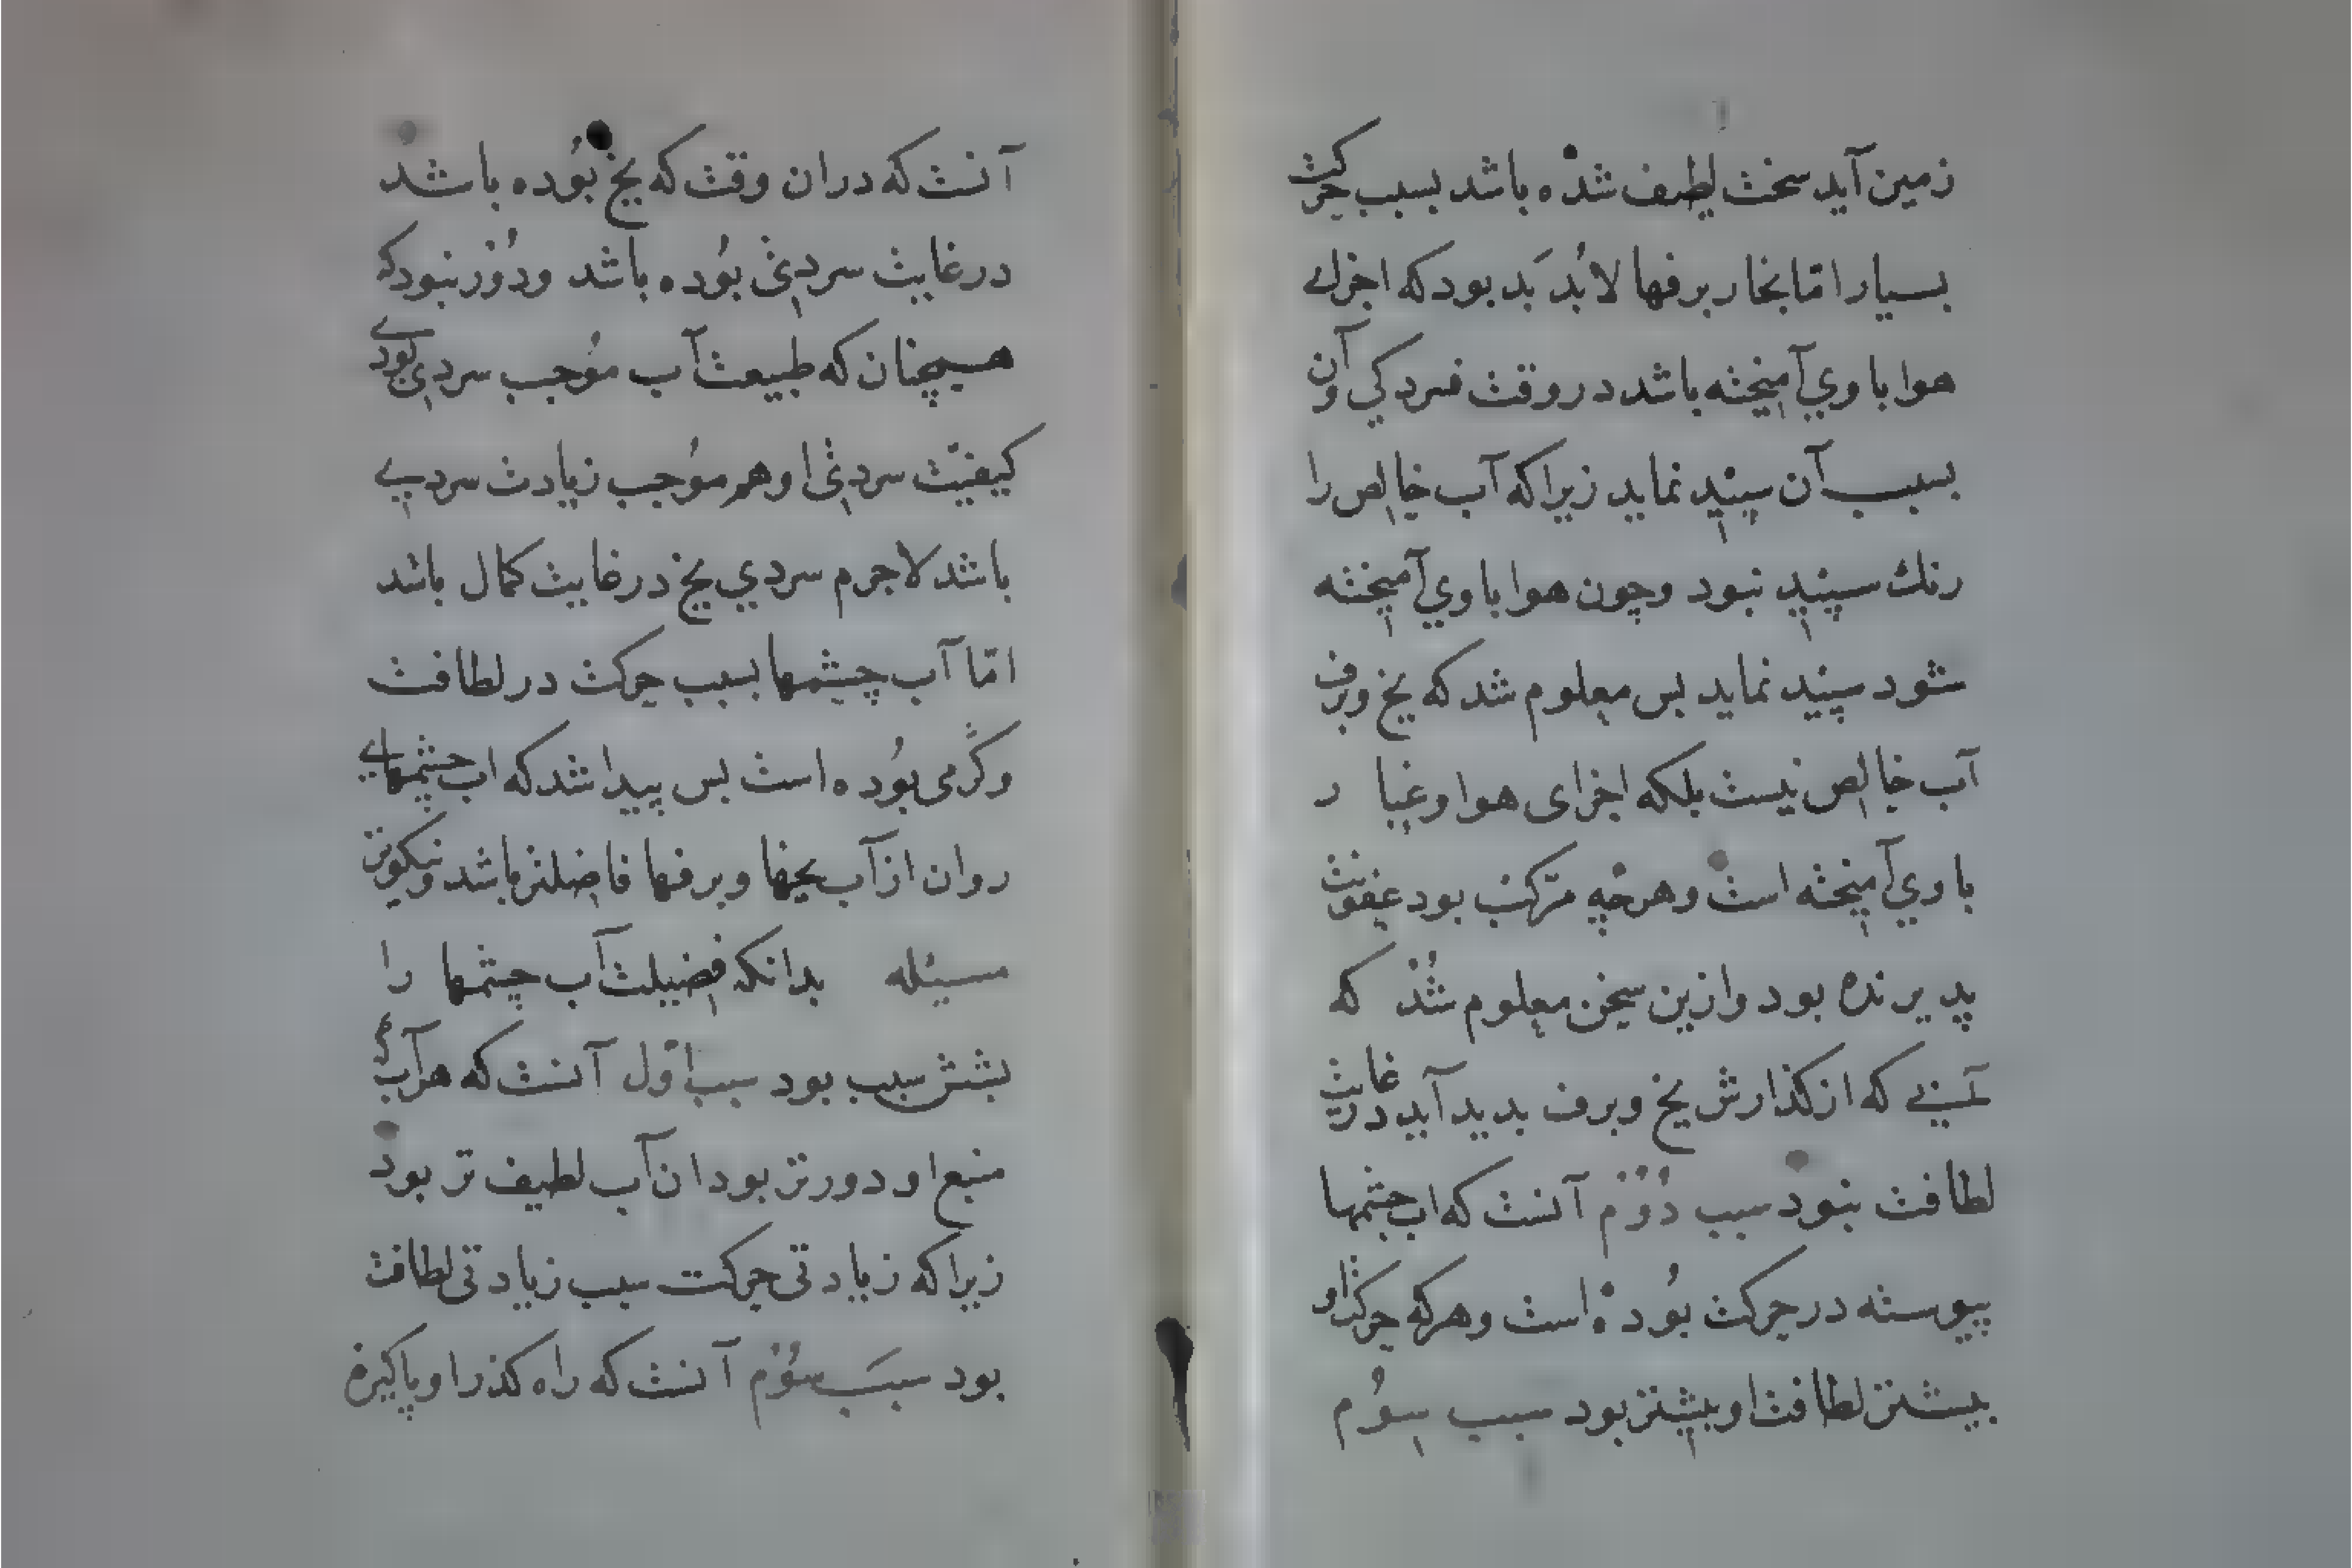 زمین آید سخت لطیف شده باشد بسبب حرکت
بسیار امّا بخار برفها لابُد بَد بود که اجزاے
هوا با وي آمیخته باشد در وقت فسردکي و آن
بسبب آن سپید نماید زیرا که آب خالص را
رنك سپید نبود وچون هوا با وي آمیخته
شود سپید نماید بس معلوم شد که یخ وبرف
آب خالص نیست بلکه اجزای هوا وغبا ر
با وي آمیخته است وهرچه مرّکب بود عفونت
پدیرنده بود وازین سخن معلوم شُد که
که از کذارش یخ وبرف بدید آید در غایت
لطافت نبود سبب دُوُم آنست که اب چشمها
پیوسته در حرکت بُوده است وهرکه حرکت او
بیشتر لطافت او بیشتر بود سبب سِوُم
آنست که دران وقت که یخ بُوده باشد
در غایت سردیئ بُوده باشد ودُور نبود که
همچنان که طبیعت آب مُوجب سردي بود
کیفیّت سردئ او هم مُوجب زیادت سردیے
باشد لاجرم سردیي یخ در غایت کمال باشد
امّا آب چشمها بسبب حرکت در لطافت
وکرمی بُوده است بس پیدا شد که اب چشمهاے
روان از آب یخها وبرفها فاضلتر باشد ونیکوتر
مسئله بدانکه فضیلت آب چشمها را
بشش سبب بود سبب اوّل آنست که هر آب کی
منبع او دورتر بود ان آب لطیف تر بود
زیرا که زیادتی حرکت سبب زیادتی لطافت
بود سبَب سِوُم آنست که راه کذر او پاکیزه